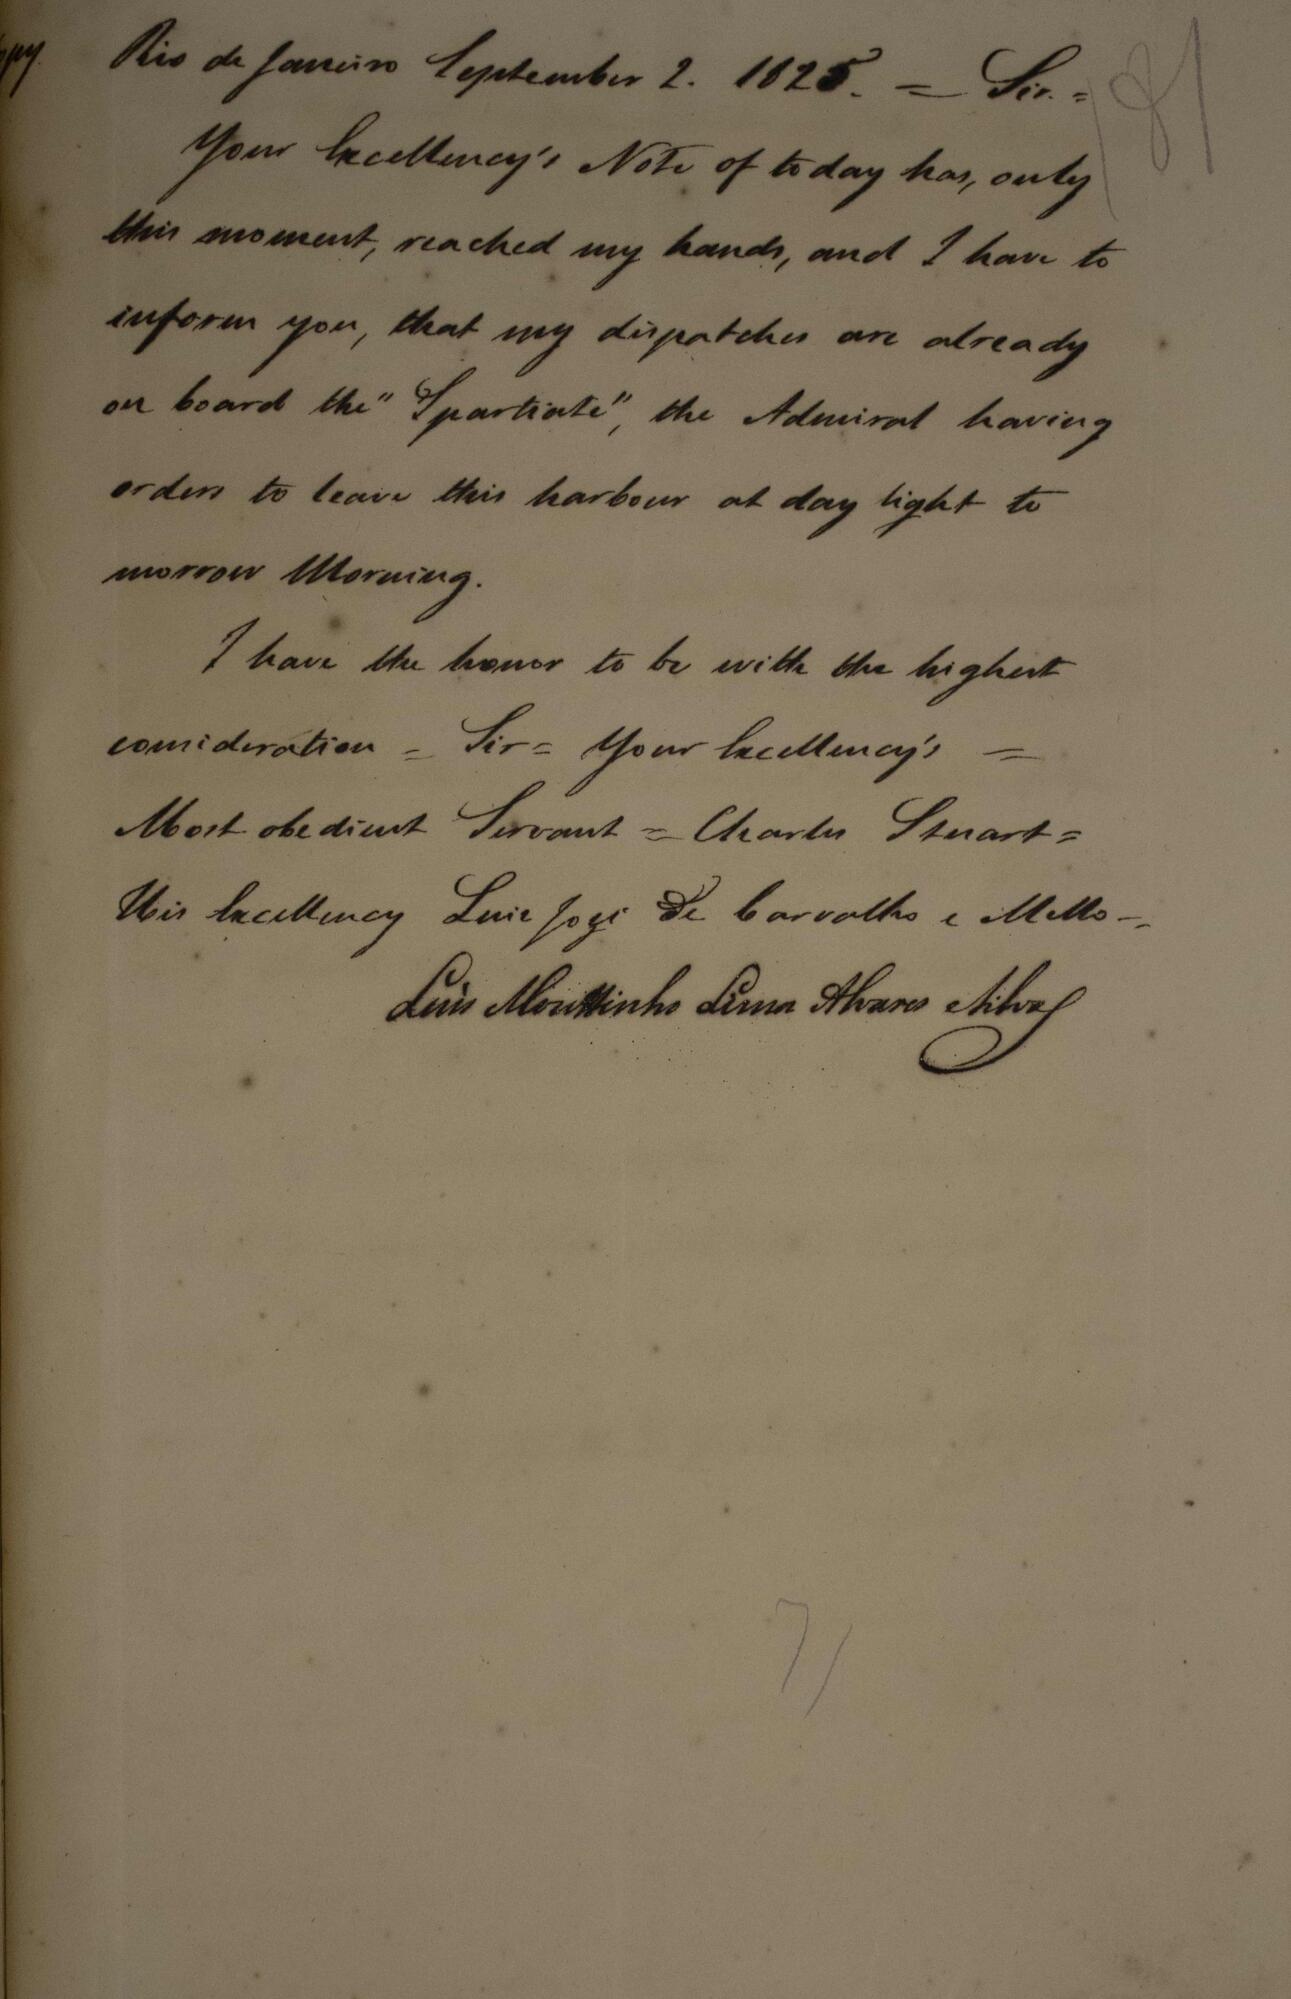 Rio de Janeiro September 2. 1825. = Sir. =
Your Excellency's Note of today has, only
this moment, reached my hands, and I have to
inform you, that my dispatches are already
on board the "Spartiate", the Admiral having
orders to leave this harbour at day light to
morrow Morning.
I have the honor to be with the highest
consideration = Sir = Your Excellency's =
Most obedient Servant = Charles Stuart =
His Excellency Luiz José de Carvalho e Mello -
Luis Mouttinho Lima Alvares eSilva
7/